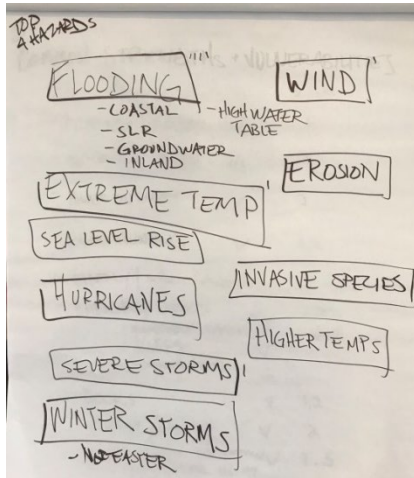 TOP
4 HAZARDS
FLOODING ''''
- COASTAL
- SLR
- GROUNDWATER
- INLAND
- HIGH WATER
TABLE
WIND '
EROSION
EXTREME TEMP '
SEA LEVEL RISE
HURRICANES
INVASIVE SPECIES
HIGHER TEMPS
SEVERE STORMS '
WINTER STORMS
- NOR'EASTER